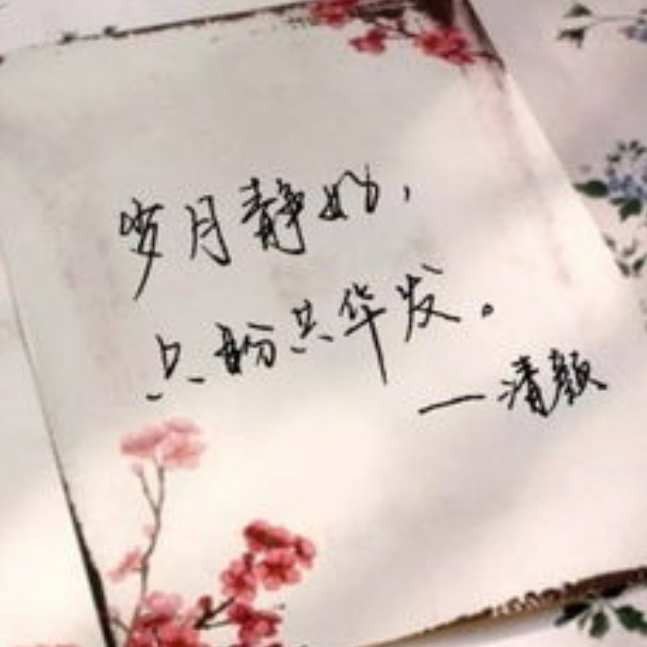 岁月静好，
只盼共华发。
—清颜